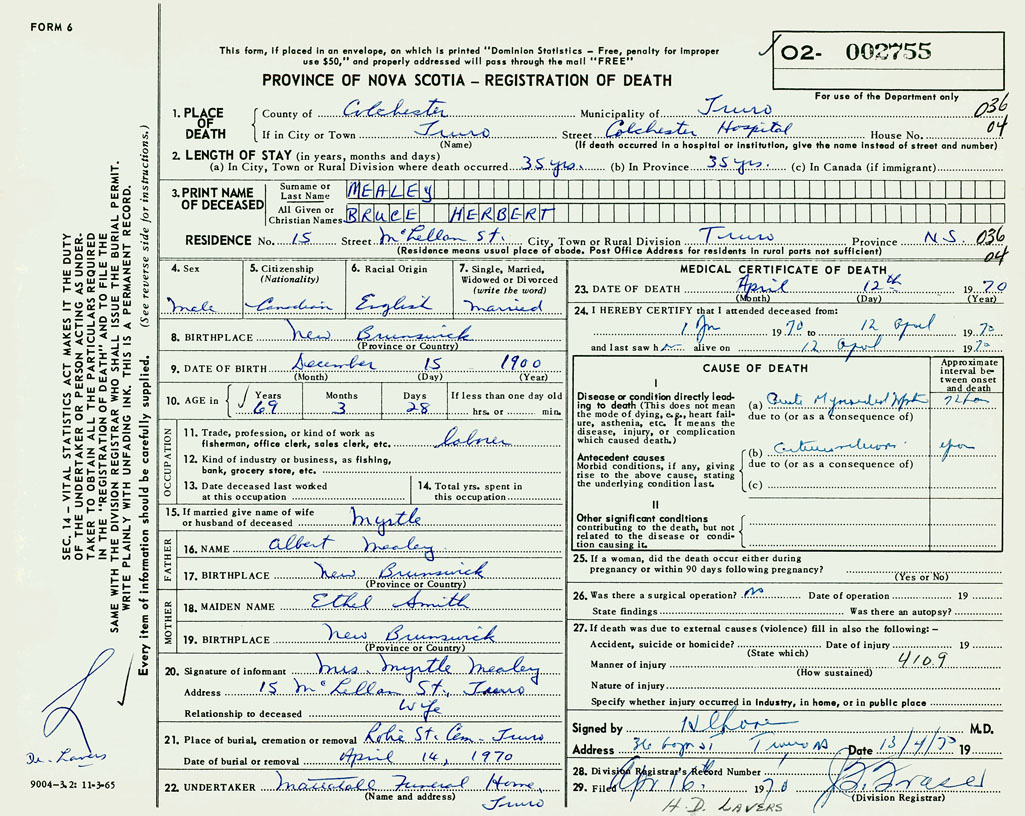 FORM 6
This form, if placed in an envelope, on which is printed "Dominion Statistics – Free, penalty for improper
use $50," and properly addressed will pass through the mail "FREE"
O2- 002755
PROVINCE OF NOVA SCOTIA – REGISTRATION OF DEATH
For use of the Department only
1. PLACE OF DEATH
County of Colchester Municipality of Truro 036
If in City or Town Truro Street Colchester Hospital House No. 04
(Name) (If death occurred in a hospital or institution, give the name instead of street and number)
2. LENGTH OF STAY (in years, months and days)
(a) In City, Town or Rural Division where death occurred 35 yrs. (b) In Province 35 yrs. (c) In Canada (if immigrant)
3. PRINT NAME OF DECEASED
Surname or Last Name MEALEY
All Given or Christian Names BRUCE HERBERT
RESIDENCE No. 15 Street McLellan St. City, Town or Rural Division Truro Province N.S. 036
(Residence means usual place of abode. Post Office Address for residents in rural parts not sufficient) 04
4. Sex
Male
5. Citizenship
(Nationality)
Canadian
6. Racial Origin
English
7. Single, Married,
Widowed or Divorced
(write the word)
Married
8. BIRTHPLACE New Brunswick
(Province or Country)
9. DATE OF BIRTH December 15 1900
(Month) (Day) (Year)
10. AGE in
Years Months Days If less than one day old
69 3 28 hrs. or min.
OCCUPATION
11. Trade, profession, or kind of work as
fisherman, office clerk, sales clerk, etc. Laborer
12. Kind of industry or business, as fishing,
bank, grocery store, etc.
13. Date deceased last worked
at this occupation
14. Total yrs. spent in
this occupation
15. If married give name of wife
or husband of deceased Myrtle
FATHER
16. NAME Albert Mealey
17. BIRTHPLACE New Brunswick
(Province or Country)
MOTHER
18. MAIDEN NAME Ethel Smith
19. BIRTHPLACE New Brunswick
(Province or Country)
20. Signature of informant Mrs. Myrtle Mealey
Address 15 McLellan St., Truro
Relationship to deceased Wife
21. Place of burial, cremation or removal Robie St. Cem. Truro
Date of burial or removal April 14, 1970
22. UNDERTAKER Mattatall Funeral Home,
(Name and address) Truro
MEDICAL CERTIFICATE OF DEATH
23. DATE OF DEATH April 12th 1970
(Month) (Day) (Year)
24. I HEREBY CERTIFY that I attended deceased from:
1 Jan 1970 to 12 April 1970
and last saw h alive on 12 April 1970
CAUSE OF DEATH
Approximate
interval be-
tween onset
and death
I
Disease or condition directly lead-
ing to death (This does not
the mode of dying, e.g., heart fail-
ure, asthenia, etc. It means the
disease, injury, or complication
which caused death.)
(a) Acute Myocardial
due to (or as a consequence of)
Antecedent causes
Morbid conditions, if any, giving
rise to the above cause, stating
the underlying condition last.
(b)
due to (or as a consequence of)
(c)
II
Other significant conditions
contributing to the death, but not
related to the disease or condi-
tion causing it.
25. If a woman, did the death occur either during
pregnancy or within 90 days following pregnancy?
(Yes or No)
26. Was there a surgical operation? No Date of operation 19
State findings Was there an autopsy?
27. If death was due to external causes (violence) fill in also the following: –
Accident, suicide or homicide? Date of injury 19
(State which)
Manner of injury 4109
(How sustained)
Nature of injury
Specify whether injury occurred in industry, in home, or in public place
Signed by M.D.
Address Truro NS Date 13/4/70 19
28. Division Registrar's Record Number
29. Filed Apr 16th 1970
(Division Registrar)
H. D. LAVERS
SEC. 14 – VITAL STATISTICS ACT MAKES IT THE DUTY
OF THE UNDERTAKER OR PERSON ACTING AS UNDER-
TAKER TO OBTAIN ALL THE PARTICULARS REQUIRED
IN THE "REGISTRATION OF DEATH" AND TO FILE THE
SAME WITH THE DIVISION REGISTRAR WHO SHALL ISSUE THE BURIAL PERMIT.
WRITE PLAINLY WITH UNFADING INK. THIS IS A PERMANENT RECORD.
Every item of information should be carefully supplied. (See reverse side for instructions.)
Dr. Lavers
9004–3.2: 11-3-65